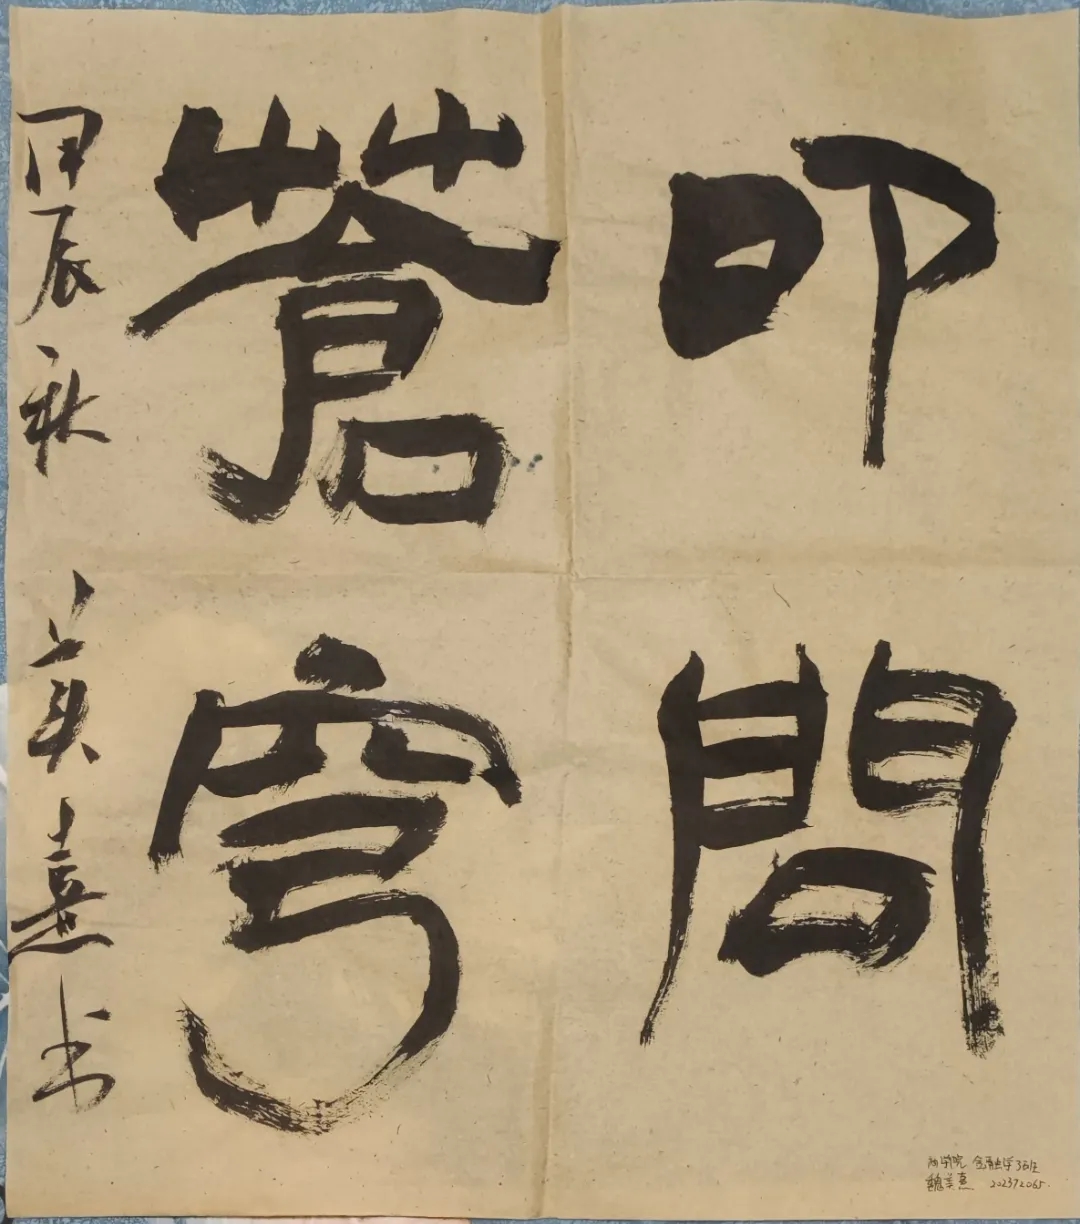 叩問
蒼穹
甲辰秋 美熹书
商学院 金融学3班
魏美熹 202372065.